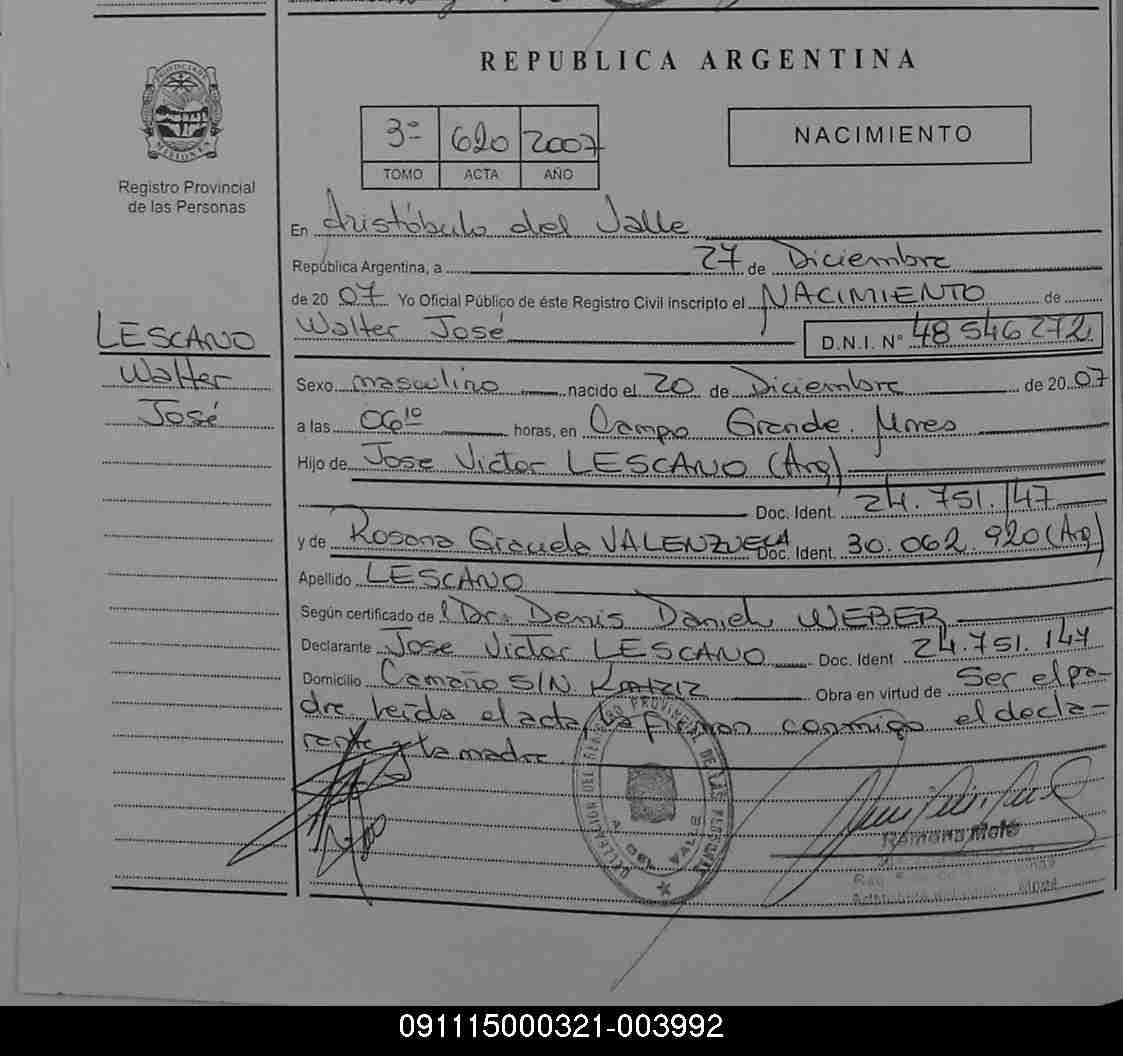 REPUBLICA ARGENTINA
PROVINCIA DE
MISIONES
Registro Provincial
de las Personas
3º 620 2007
TOMO ACTA AÑO
NACIMIENTO
En Aristóbulo del Valle
República Argentina, a 27 de Diciembre
de 20 07 Yo Oficial Público de éste Registro Civil inscripto el NACIMIENTO de
Walter José D.N.I. Nº 48546272
LESCANO
Walter
José
Sexo masculino nacido el 20 de Diciembre de 20 07
a las 06 10 horas, en Campo Grande. Mnes
Hijo de Jose Victor LESCANO (Arg)
Doc. Ident. 24.751.147
y de Rosana Graciela VALENZUELA Doc. Ident. 30.062.920 (Arg)
Apellido LESCANO
Según certificado de Dr. Denis Daniel WEBER
Declarante Jose Victor LESCANO Doc. Ident 24.751.147
Domicilio Camaño S/N Obra en virtud de Ser el pa-
dre, leída el acta, la firman conmigo el decla-
rante y la madre
DELEGACION DEL REGISTRO PROVINCIAL DE LAS PERSONAS
A. DEL VALLE
091115000321-003992